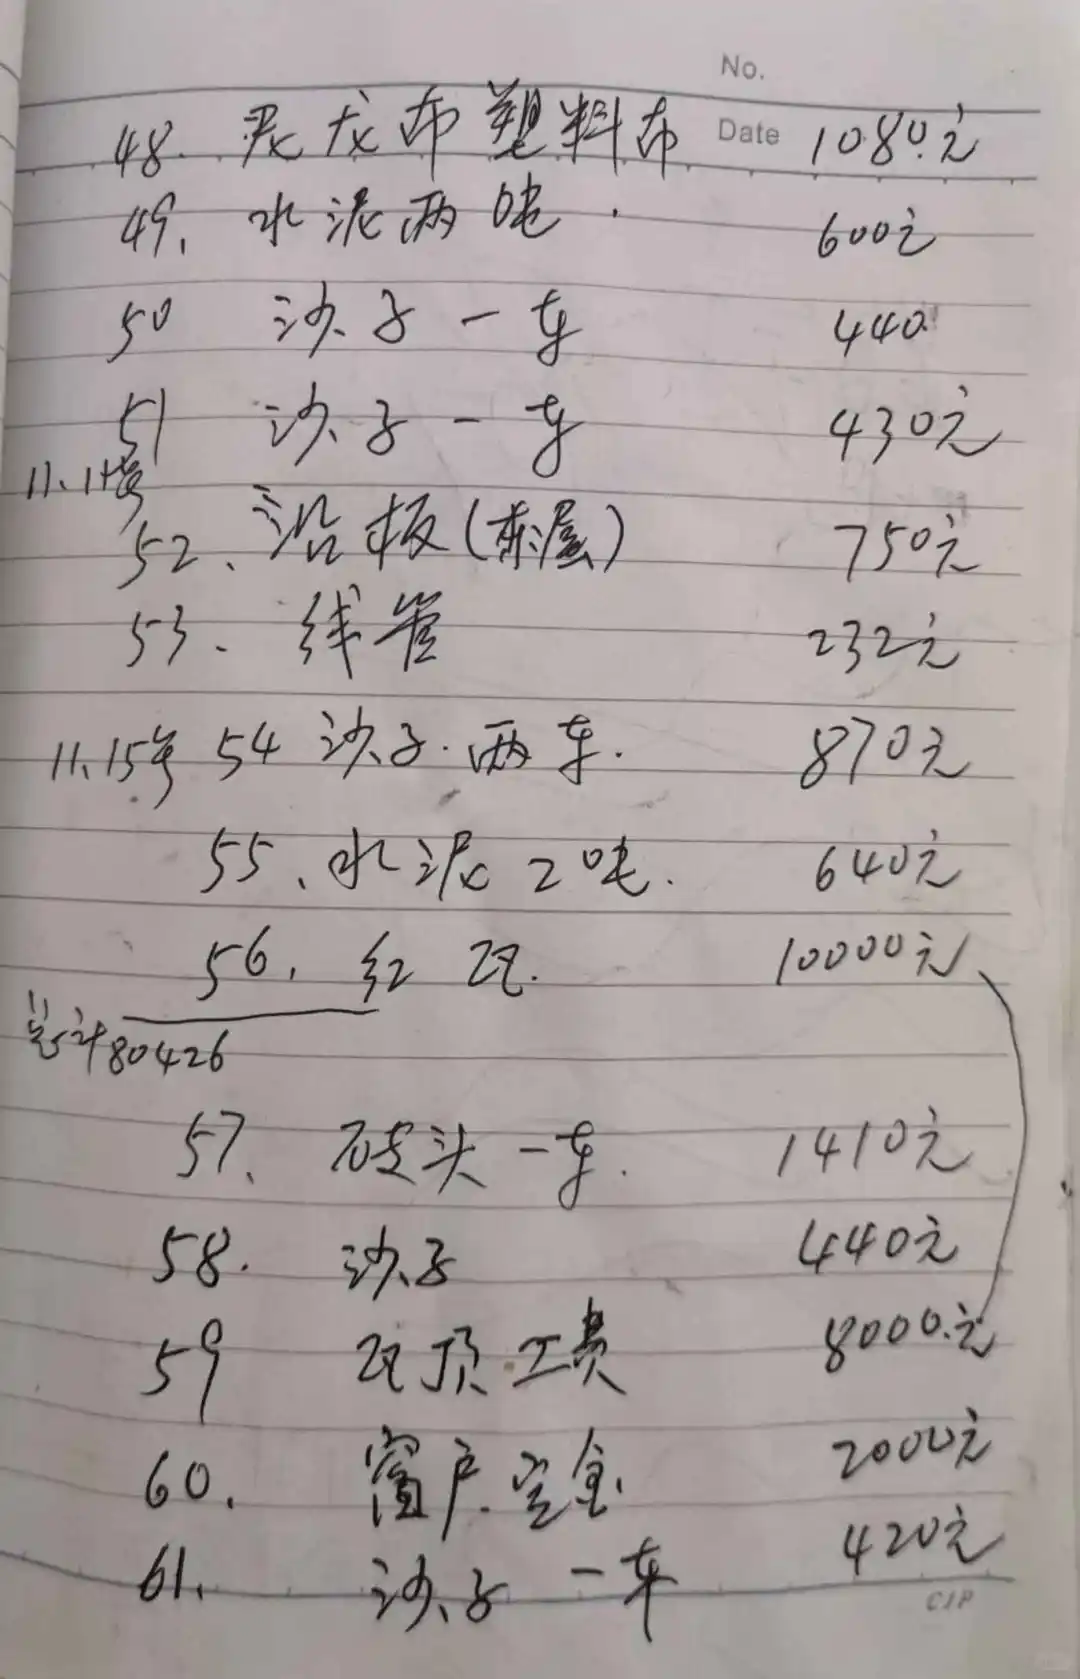 No.
Date
48. 尼龙布塑料布 1080.元
49. 水泥两吨. 600元
50 沙子一车 440
51 沙子一车 430元
11.11号
52、沿板(东屋) 750元
53、线管 232元
11.15号 54 沙子.两车. 870元
55、水泥2吨. 640元
56. 红瓦. 10000元
总计80426
57、砖头一车. 1410元
58. 沙子 440元
59 瓦顶.工费 8000.元
60. 窗户.定金. 2000元
61. 沙子一车 420元